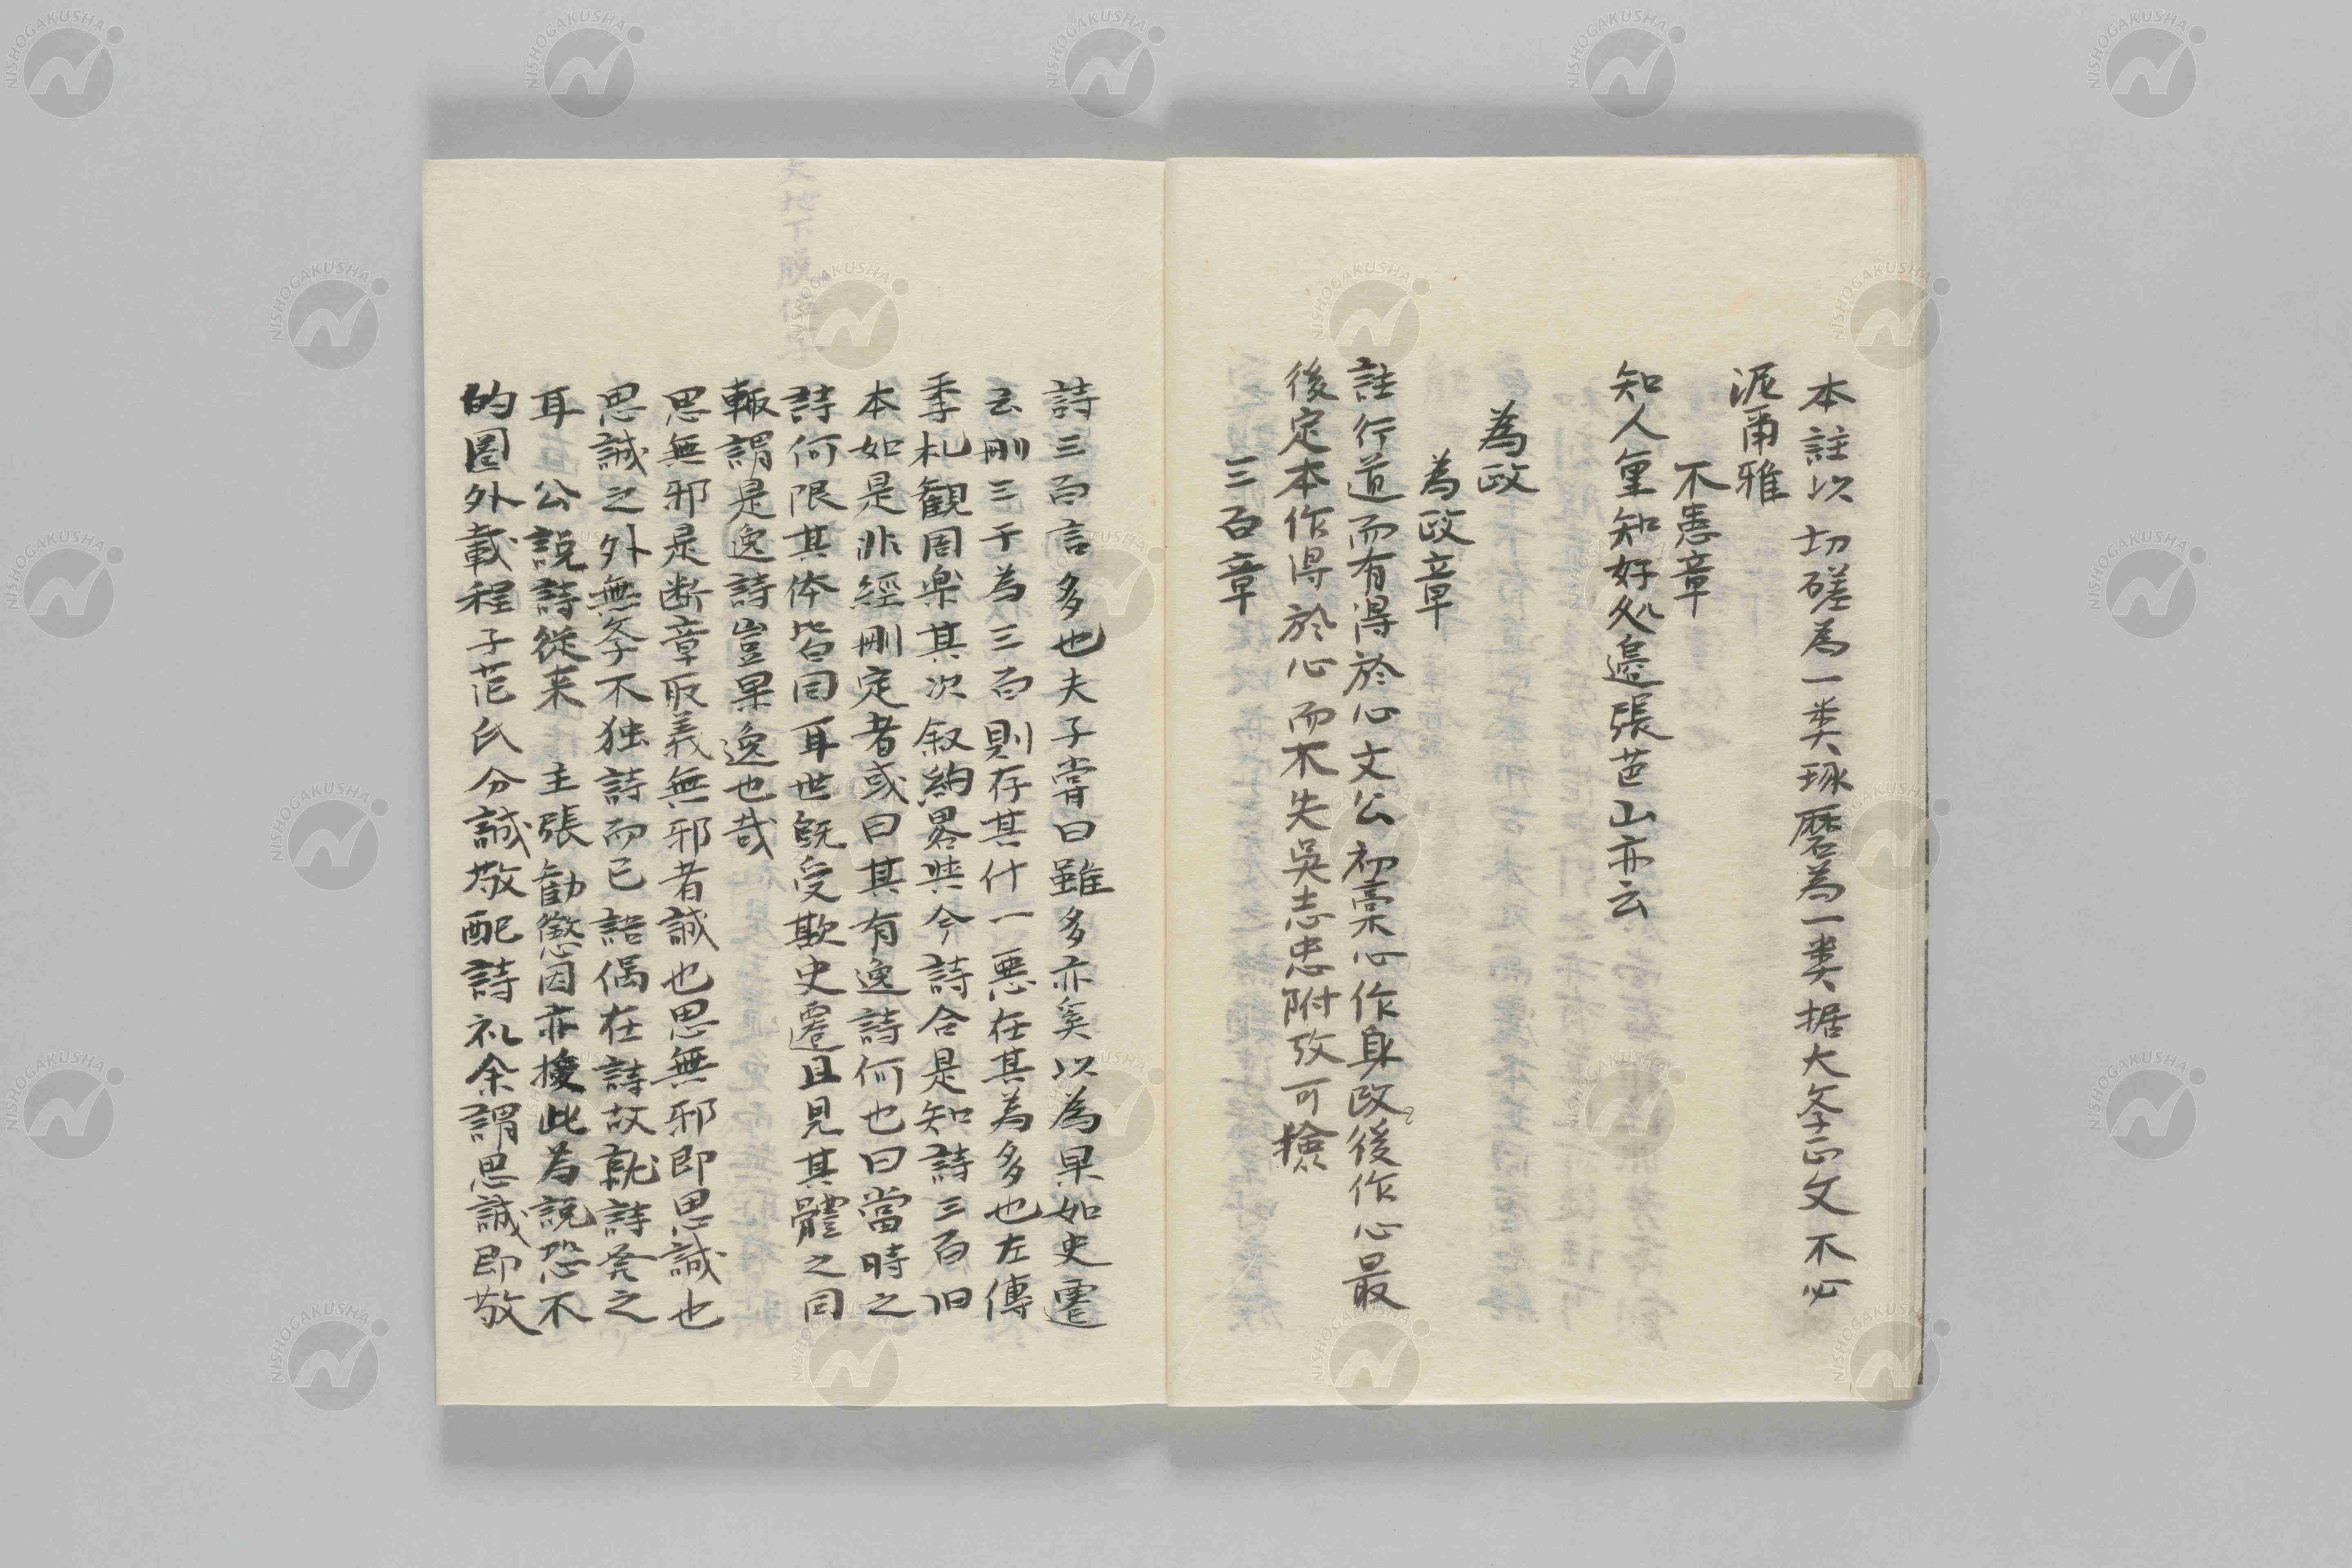 本註以切磋為一类琢磨為一类据大学正文不必
泥甬雅
不患章
知人重知好処邉張芭山亦云
為政
為政章
註行道而有得於心文公初稾心作身改後作心最
後定本作得於心而不失吳志忠附攷可撿
三百章
詩三百言多也夫子嘗曰雖多亦奚以為果如史遷
云刪三千為三百則存其什一悪在其為多也左傳
季札観周楽其次叙約畧與今詩合是知詩三百旧
本如是非經刪定者或曰其有逸詩何也曰當時之
詩何限其体皆同耳世既受欺史遷且見其體之同
輙謂是逸詩豈果逸也哉
思無邪是断章取義無邪者誠也思無邪即思誠也
思誠之外無学不独詩而已語偶在詩故就詩発之
耳公説詩從来主張勧懲因亦援此為説恐不
的圏外載程子范氏分誠敬配詩礼余謂思誠即敬
NISHOGAKUSHA